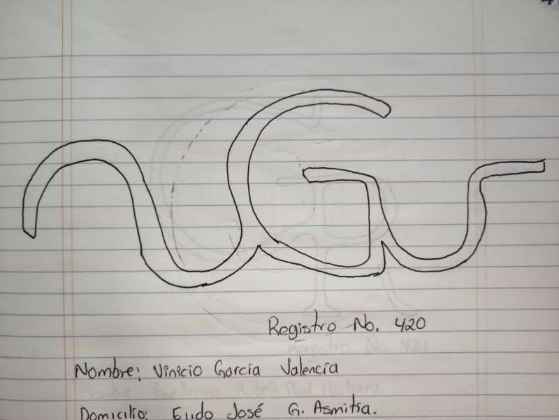 VGV
Registro No. 420
Nombre: Vinicio Garcia Valencia
Domicilio: Eudo José G. Asmitia.